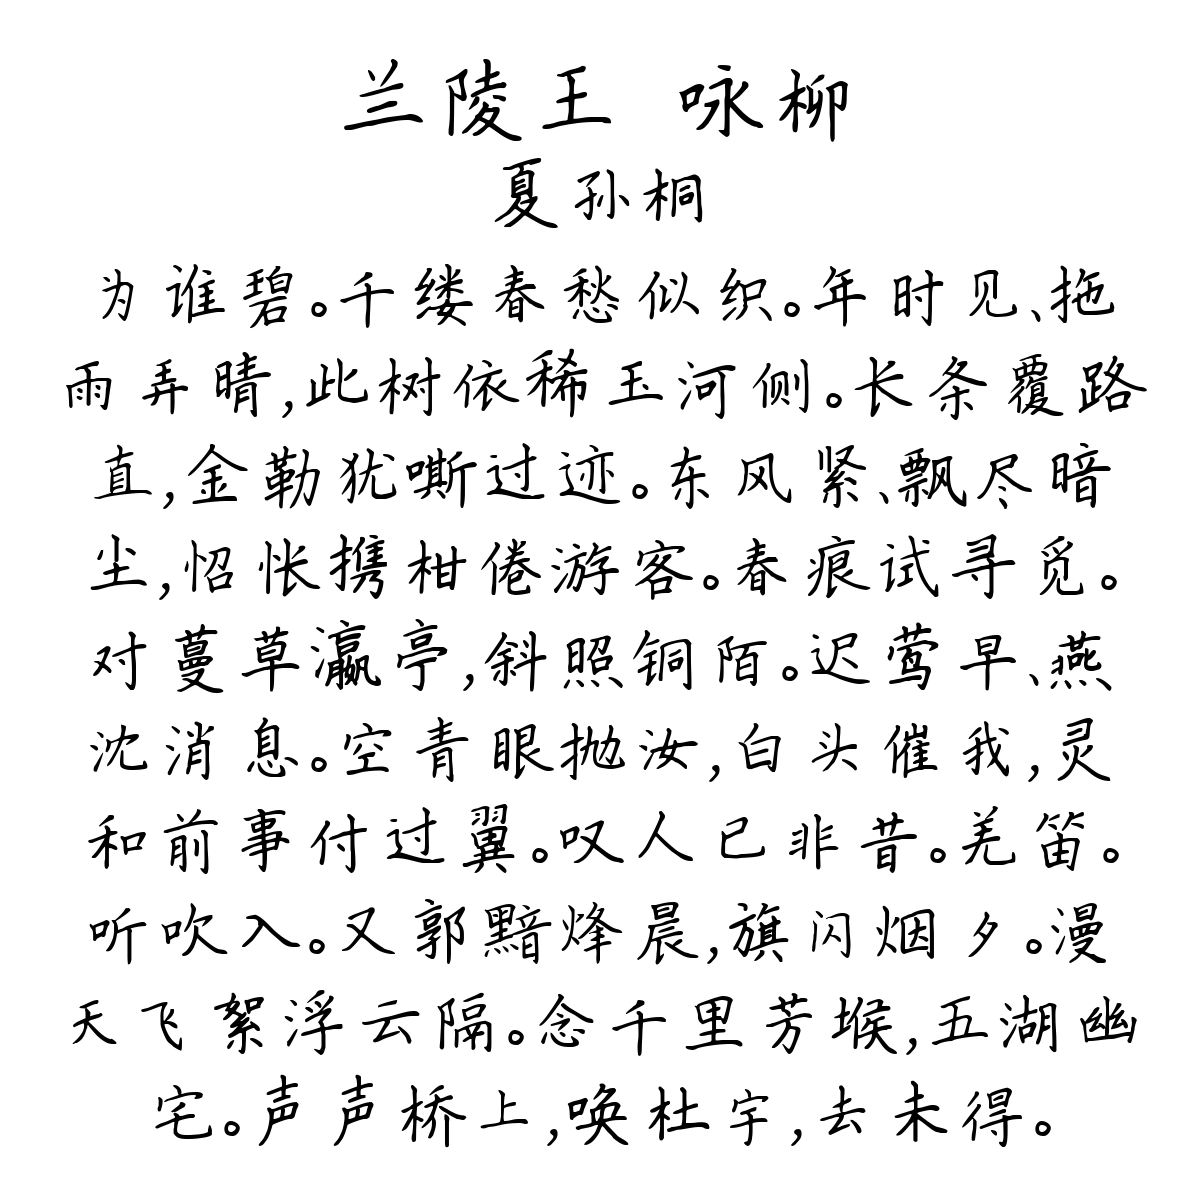 兰陵王 咏柳
夏孙桐
为谁碧。千缕春愁似织。年时见、拖
雨弄晴,此树依稀玉河侧。长条覆路
直,金勒犹嘶过迹。东风紧、飘尽暗
尘,怊怅携柑倦游客。春痕试寻觅。
对蔓草瀛亭,斜照铜陌。迟莺早、燕
沈消息。空青眼抛汝,白头催我,灵
和前事付过翼。叹人已非昔。羌笛。
听吹入。又郭黯烽晨,旗闪烟夕。漫
天飞絮浮云隔。念千里芳堠,五湖幽
宅。声声桥上,唤杜宇,去未得。